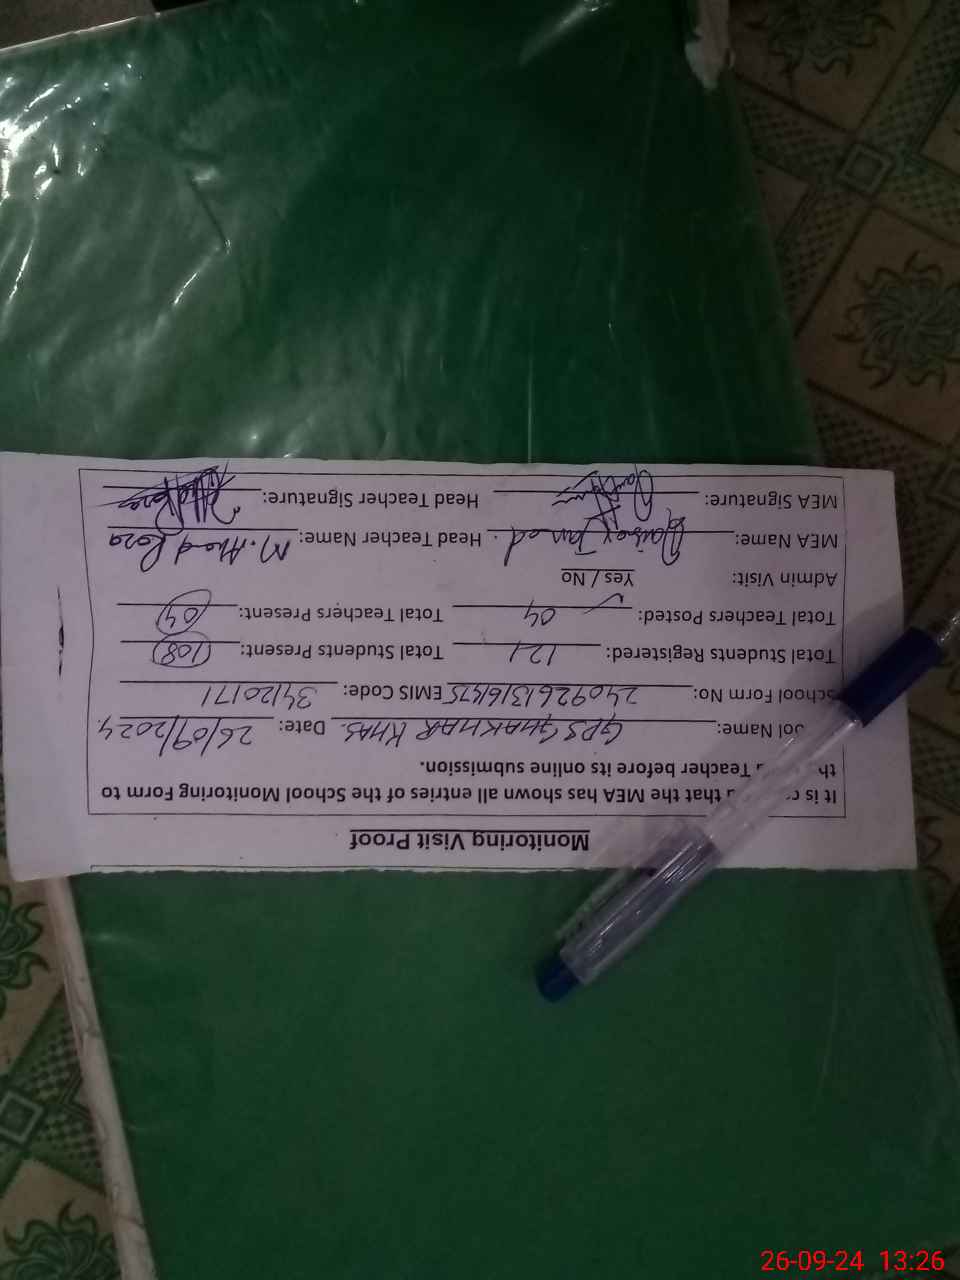 Monitoring Visit Proof
It is that the MEA has shown all entries of the School Monitoring Form to
Teacher before its online submission.
ool Name: GPS GHAKHAR KHAS. Date: 26/09/2024.
School Form No: EMIS Code: 34120171
Total Students Registered: 121 Total Students Present: 108
Total Teachers Posted: 04 Total Teachers Present: 04
Admin Visit: Yes / No
MEA Name: Head Teacher Name: M. Ahmad Raza
MEA Signature: Head Teacher Signature:
26-09-24 13:26